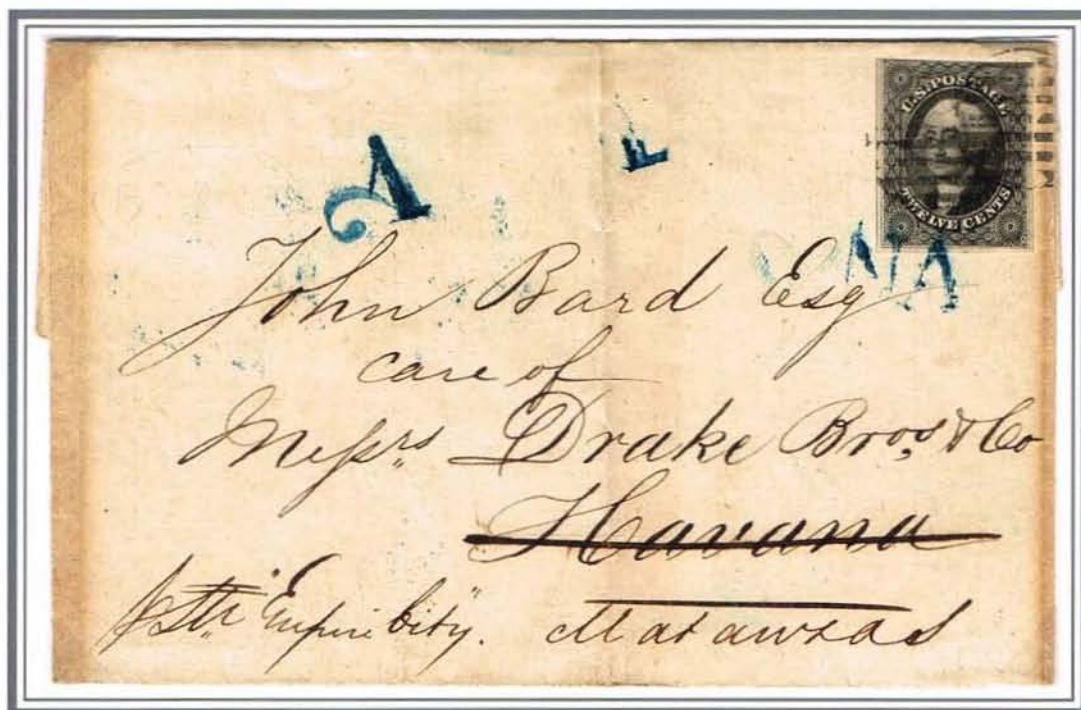 U.S. POSTAGE
TWELVE CENTS
NA
John Bard Esq
care of
Messrs Drake Bros & Co
Havana
p Str "Empire City". Matanzas